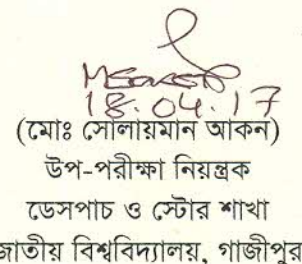 18.04.17
(মোঃ সোলায়মান আকন)
উপ-পরীক্ষা নিয়ন্ত্রক
ডেসপাচ ও স্টোর শাখা
জাতীয় বিশ্ববিদ্যালয়, গাজীপুর